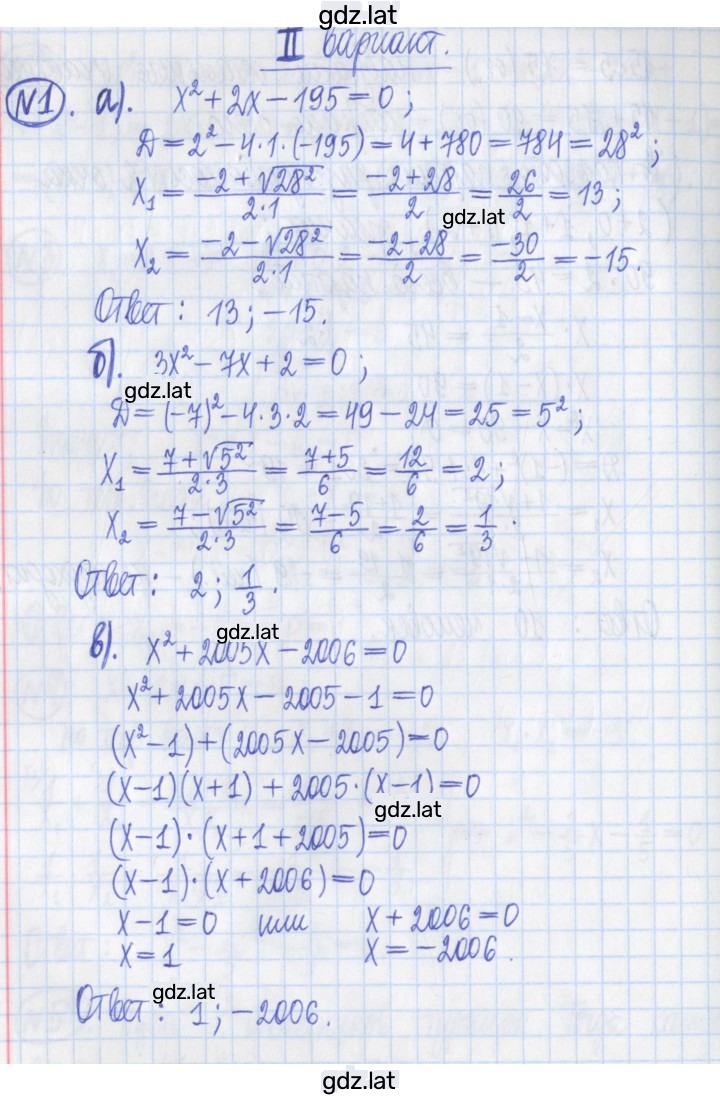 gdz.lat
II вариант.
№1. а). x² + 2x − 195 = 0 ;
Д = 2² − 4·1·(−195) = 4 + 780 = 784 = 28² ;
x₁ = (−2 + √28²)/(2·1) = (−2 + 28)/2 = 26/2 = 13 ;
gdz.lat
x₂ = (−2 − √28²)/(2·1) = (−2 − 28)/2 = −30/2 = −15.
Ответ : 13 ; −15.
б). 3x² − 7x + 2 = 0 ;
gdz.lat
Д = (−7)² − 4·3·2 = 49 − 24 = 25 = 5² ;
x₁ = (7 + √5²)/(2·3) = (7+5)/6 = 12/6 = 2 ;
x₂ = (7 − √5²)/(2·3) = (7−5)/6 = 2/6 = 1/3 .
Ответ : 2 ; 1/3 .
gdz.lat
в). x² + 2005x − 2006 = 0
x² + 2005x − 2005 − 1 = 0
(x² − 1) + (2005x − 2005) = 0
(x−1)(x+1) + 2005·(x−1) = 0
gdz.lat
(x−1)·(x+1+2005) = 0
(x−1)·(x+2006) = 0
x−1 = 0 или x + 2006 = 0
x = 1 x = −2006 .
gdz.lat
Ответ : 1 ; −2006.
gdz.lat